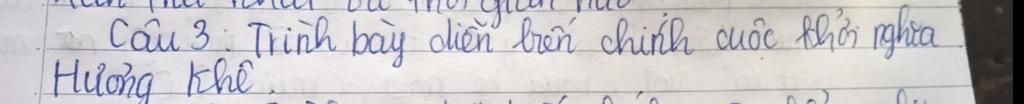 Câu 3: Trình bày diễn biến chính cuộc khởi nghĩa
Hương Khê.